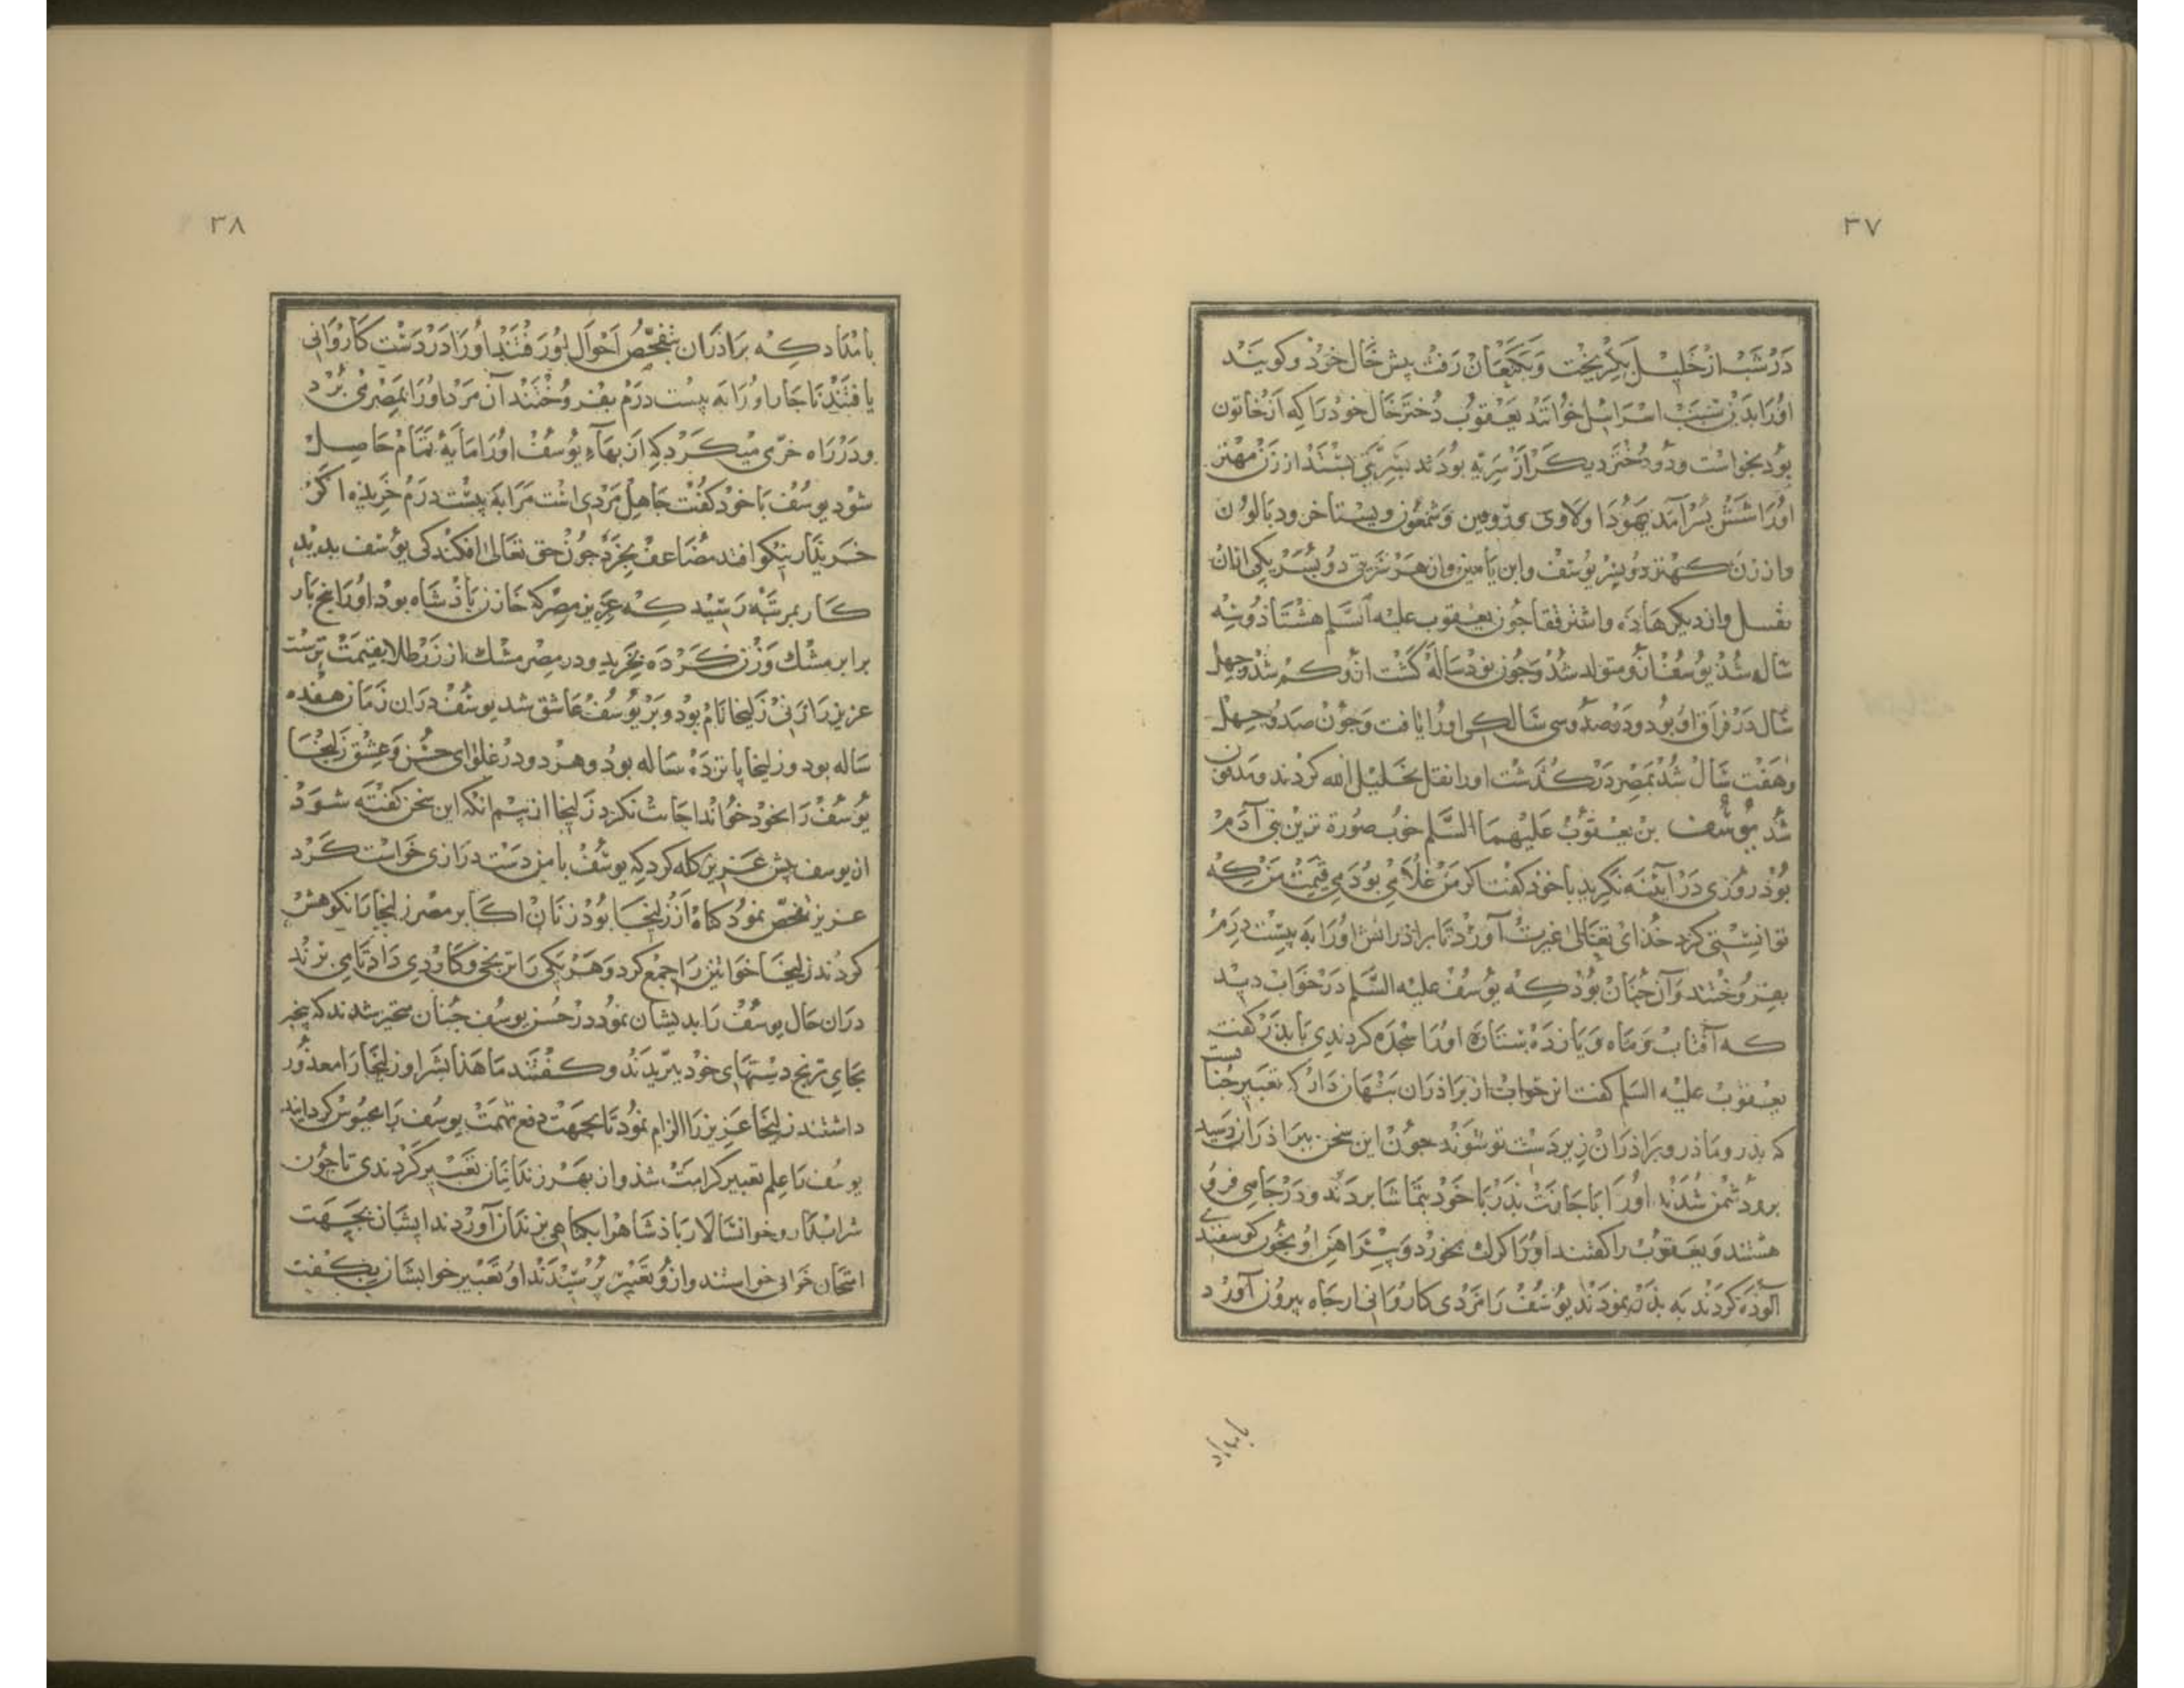 ۳۷
در شب از خلیل بگریخت و بکنعان رفت پیش خال خوذ و کویند
اورا بدین سبب اسرائیل خوانند یعقوب دختر خال خود را که از خاتون
بود بخواست و دو دختر دیکر از سریه بودند بسریتی بستند از زن مهتر
اورا شش پسر آمد یهودا و لاوی و روبین و شمعون و یستاخر و زبالون
و از زن کهتر دو پسر یوسف و ابن یامین و از هر سریتی دو پسر یکی ازان
نفسل و ازدیکر هاده و اشتر فقا جون یعقوب علیه السلم هشتاذ و سه
ساله شذ یوسف ازو متولد شذ و جون نود ساله کشت ازو کم شذ و جهل
سال در فراق او بود و در صد و سی سالکی اورا یافت و جون صد و جهل
و هفت سال شذ بمصر در کذشت اورا نقل بخلیل الله کردند و مدفون
شد یوسف بن یعقوب علیهما السلم خوب صورة ترین بنی آدم
بوذ روزی در آیینه نکرید با خوذ کفت اکر من غلامی بودمی قیمت من که
توانستی کرد خذای تعالی غیرت آورد تا براذرانش اورا به بیست درم
بفروختند و آن جنان بوذ که یوسف علیه السلم در خواب دید
که آفتاب و ماه و یازده ستاره اورا سجده کردندی با پدر کفت
یعقوب علیه السلم کفت این خواب از براذران پنهان دار که تعبیر جنانست
که پذر و ماذر و براذران زیردست تو شوند جون این سخن ببراذران رسید
برو دشمن شدند اورا باجازت پذر با خوذ بتماشا بردند و در جاهی فرو
هشتند و یعقوب را کفتند اورا کرک بخورد و پیراهن او بخون کوسفندی
آلوذه کردند به پذر نمودند یوسف را مردی کاروانی از جاه بیرون آورد
بامداد
۳۸
بامداد که براذران بتفحص احوال او رفتند اورا در دست کاروانی
یافتند ناجار اورا به بیست درم بفروختند آن مرد اورا بمصر می برد
و در راه خرمی میکرد که از بهاء یوسف اورا مایه تمام حاصل
شود یوسف با خوذ کفت جاهل مردی است مرا به بیست درم خریذه اکر
خریدار نیکو افتد مضاعف بخرد جون حق تعالی افکندکی یوسف بدید
کار بمرتبه رسید که عزیز مصر که خازن پاذشاه بود اورا پنج بار
برابر مشک وزن کرده بخرید و در مصر مشک از زر طلا بقیمت ترست
عزیز را زنی زلیخا نام بود و بر یوسف عاشق شد یوسف دران زمان هفده
ساله بود و زلیخا پانزده ساله بود و هر دو در غلوای حسن و عشق زلیخا
یوسف را بخود خواند اجابت نکرد زلیخا از بیم انکه این سخن کفته شود
ان یوسف پیش عزیز کله کرد که یوسف با من دست درازی خواست کرد
عزیز تفحص نمود کناه از زلیخا بوذ زنان اکابر مصر زلیخا را نکوهش
کردند زلیخا خواتین را جمع کرد و هر یکی را ترنجی و کاردی داد تا می برند
دران حال یوسف را بدیشان نمود در حسن یوسف جنان متحیر شدند که
بجای ترنج دستهای خود ببریدند و کفتند ما هذا بشرا و زلیخا را معذور
داشتند زلیخا عزیز را الزام نمود تا بجهت دفع تهمت یوسف را محبوس کردانید
یوسف را علم تعبیر کرامت شذ و از بهر زندانیان تعبیر کردندی تا جون
شرابدار و خوانسالار پاذشاه را بکناهی بزندان آوردند ایشان بجهت
امتحان خوابی خواستند و ازو تعبیر پرسیدند او تعبیر خوابشان بکفت